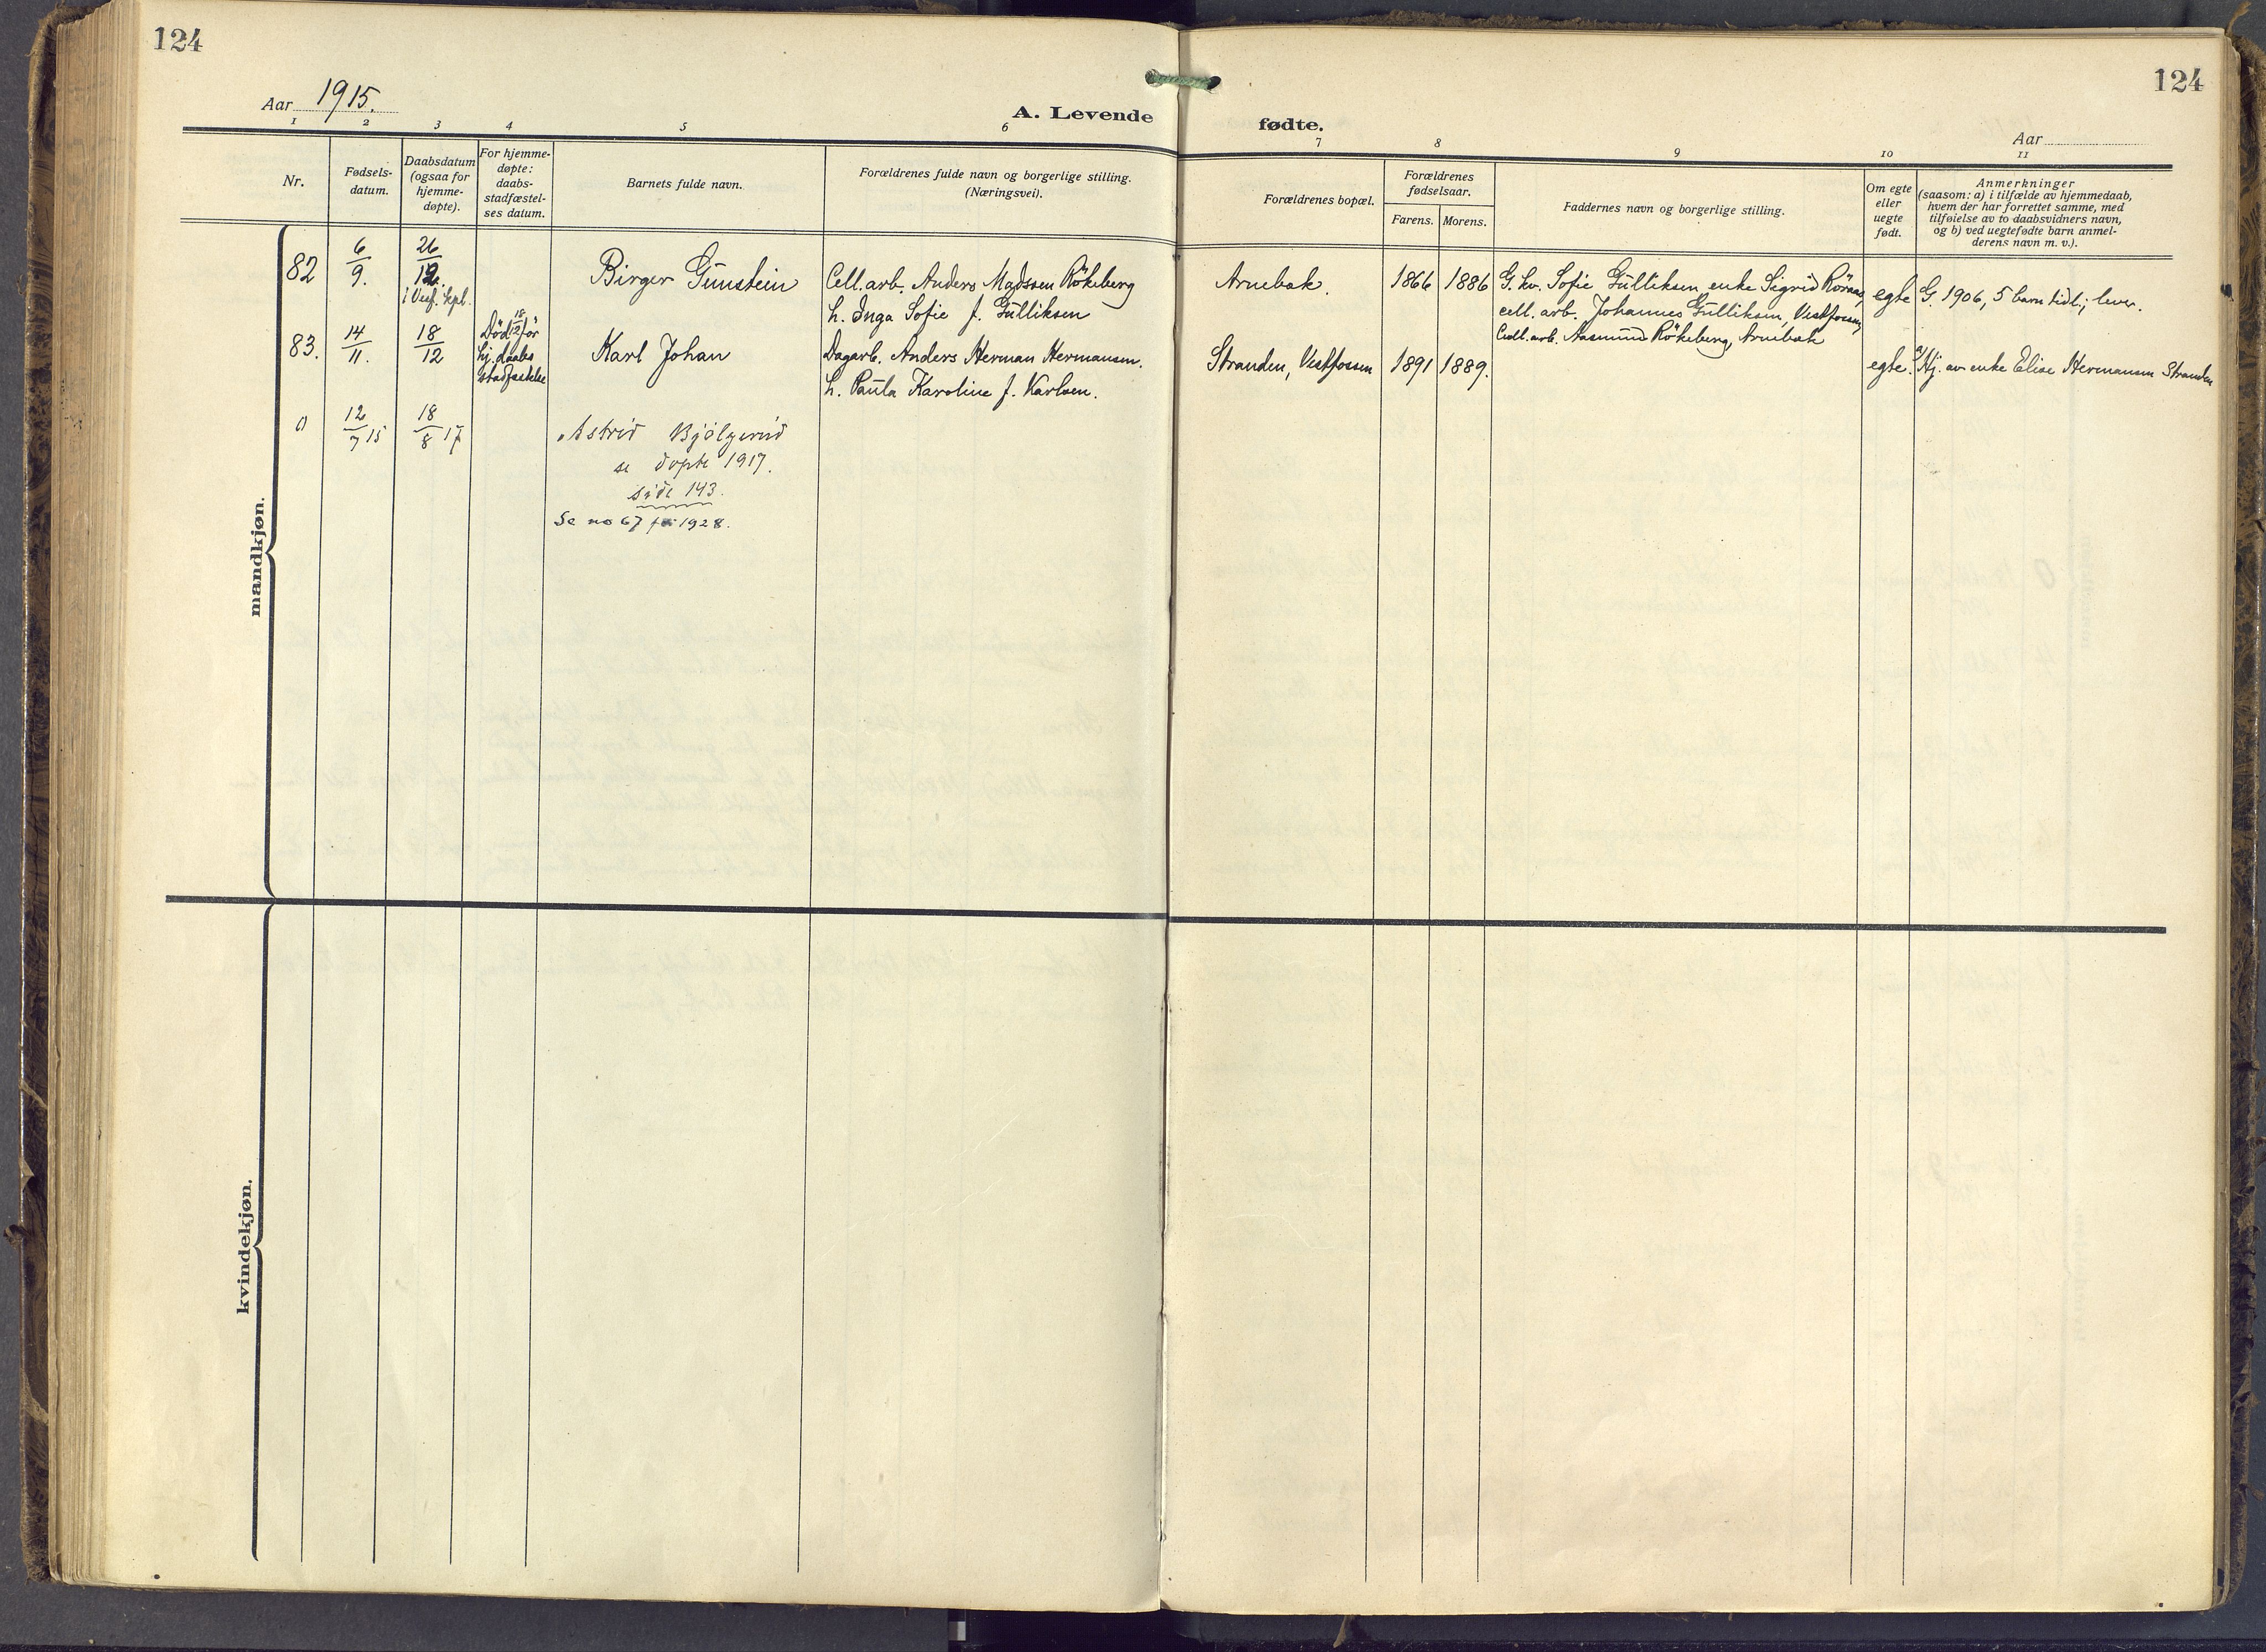 124
124
Aar 1915.
A. Levende fødte.
Aar
1 2 3 4 5 6 7 8 9 10 11
Nr.
Fødsels-
datum.
Daabsdatum
(ogsaa for
hjemme-
døpte).
For hjemme-
døpte:
daabs-
stadfæstel-
ses datum.
Barnets fulde navn.
Forældrenes fulde navn og borgerlige stilling.
(Næringsvei).
Forældrenes bopæl.
Forældrenes
fødselsaar.
Farens. Morens.
Faddernes navn og borgerlige stilling.
Om egte
eller
uegte
født.
Anmerkninger
(saasom: a) i tilfælde av hjemmedaab,
hvem der har forrettet samme, med
tilføielse av to daabsvidners navn,
og b) ved uegtefødte barn anmel-
derens navn m. v.).
mandkjøn.
82 6/9. 26/12. i Vesf. kpl.
Birger Gunstein
Cell.arb. Anders Madssen Rökeberg
h. Inga Sofie f. Gulliksen
Arnebak. 1866 1886
G. kv. Sofie Gulliksen, enke Sigrid Röraas,
cell. arb. Johannes Gulliksen, Vestfossen,
Cell.arb. Aasmund Rökeberg, Arnebak
egte G. 1906, 5 barn tidl.; lever.
83. 14/11. 18/12
Död 18/12 för
hj. daabs
stadfæstelse
Karl Johan
Dagarb. Anders Herman Hermansen.
h. Paula Karoline f. Karlsen.
Stranden, Vestfossen 1891 1889.
egte. a/ Hj. av enke Elise Hermansen Stranden
0 12/7 15 18/8 17
Astrid Bjölgerud
se döpte 1917.
side 143.
Se no 67 for 1928.
kvindekjøn.